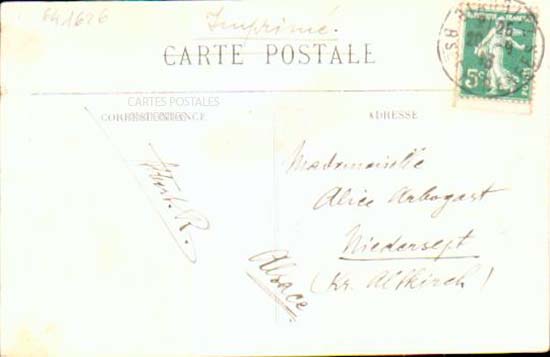 641626
Imprimé.
CARTE POSTALE
5c
CARTES POSTALES
CORRESPONDANCE
ADRESSE
Mademoiselle
Alice Arbogast
Niedersept
(Kr. Altkirch)
Alsace